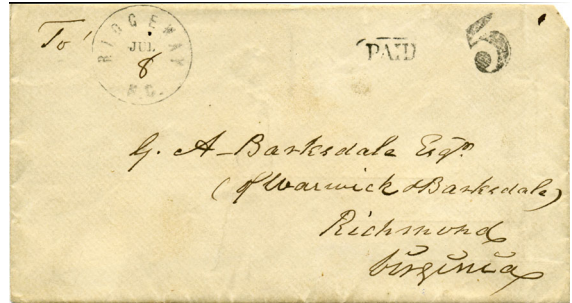 To
RIDGEWAY
JUL
8
N.C.
PAID
5
G. A. Barksdale Esqr.
(of Warwick & Barksdale)
Richmond
Virginia